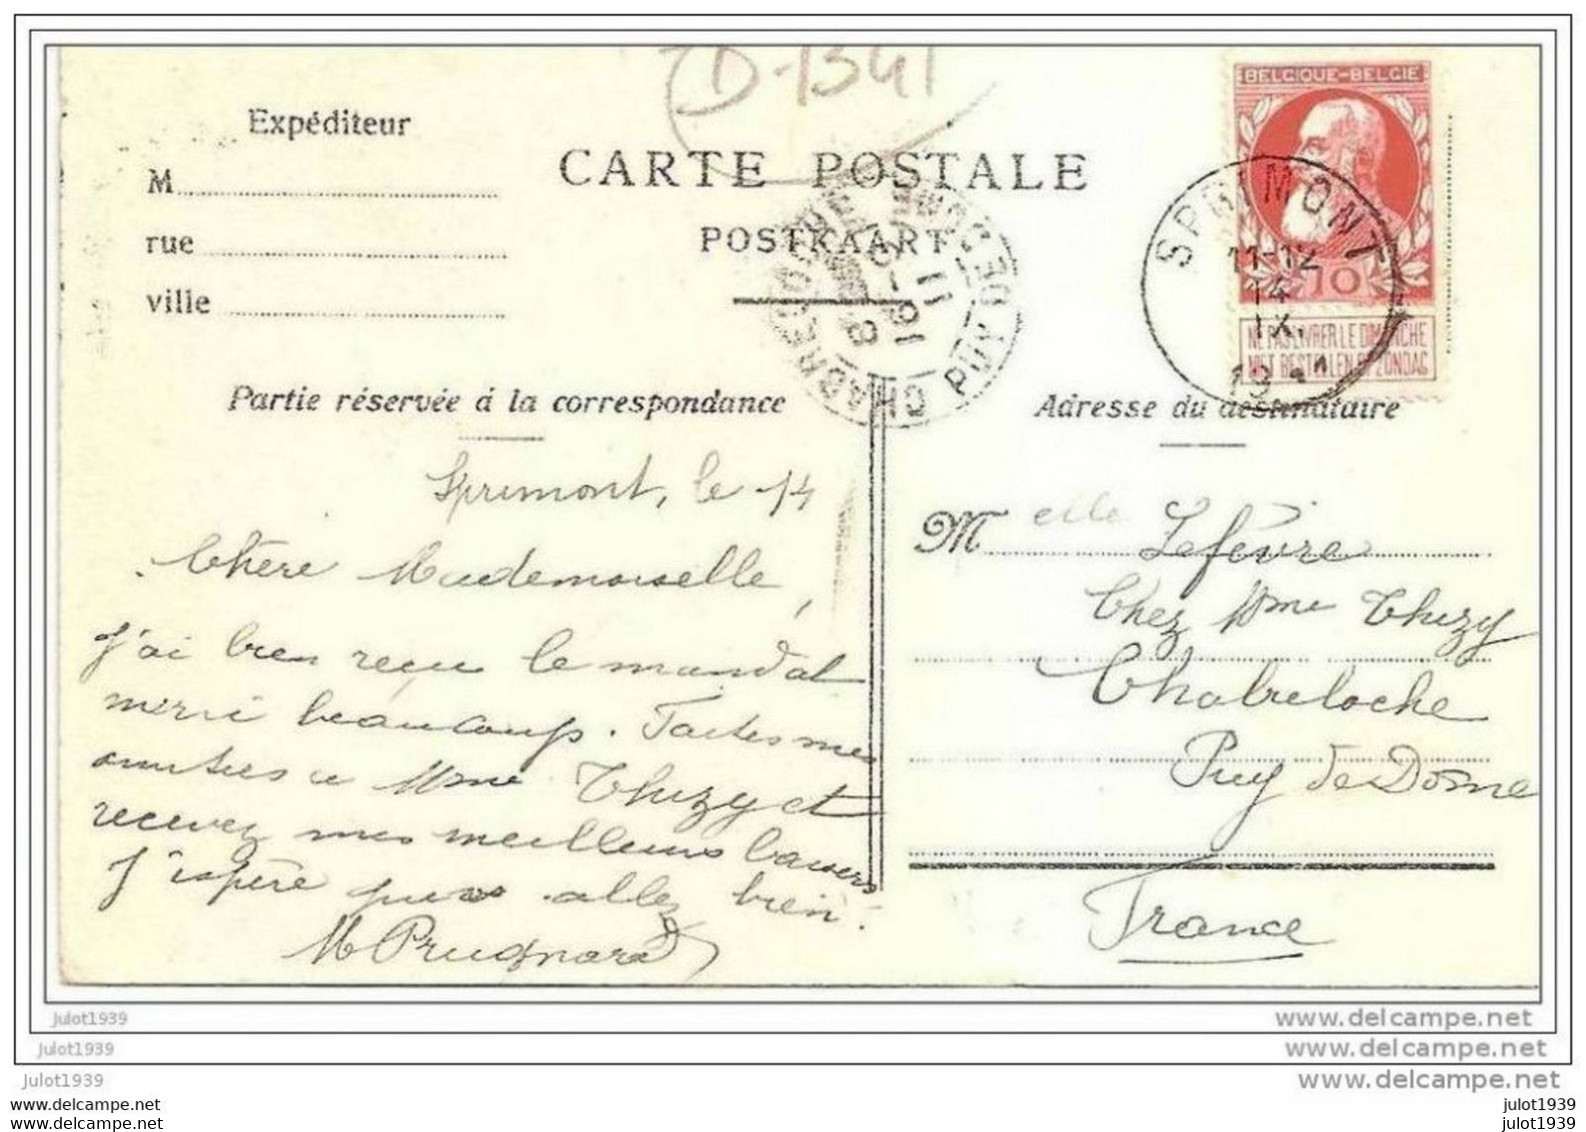 D-1341
BELGIQUE-BELGIE
10
NE PAS LIVRER LE DIMANCHE
NIET BESTELLEN OP ZONDAG
SPRIMONT
11-12
14
IX
19
Expéditeur
M
rue
ville
CARTE POSTALE
POSTKAART
PUY DE DOME
16-9
11
Partie réservée á la correspondance
Adresse du destinataire
Sprimont, le 14
Chère Mademoiselle,
J'ai bien reçu le mandat
merci beaucoup. Faites mes
amitiés a Mme Thizy et
recevez mes meilleurs baisers
J'espère que allez bien.
M Prugnard
Melle Lefèvre
Chez Mme Thizy
Chabreloche
Puy de Dome
France
julot1939
julot1939
julot1939
julot1939
julot1939
www.delcampe.net
www.delcampe.net
www.delcampe.net
www.delcampe.net
www.delcampe.net
julot1939
julot1939